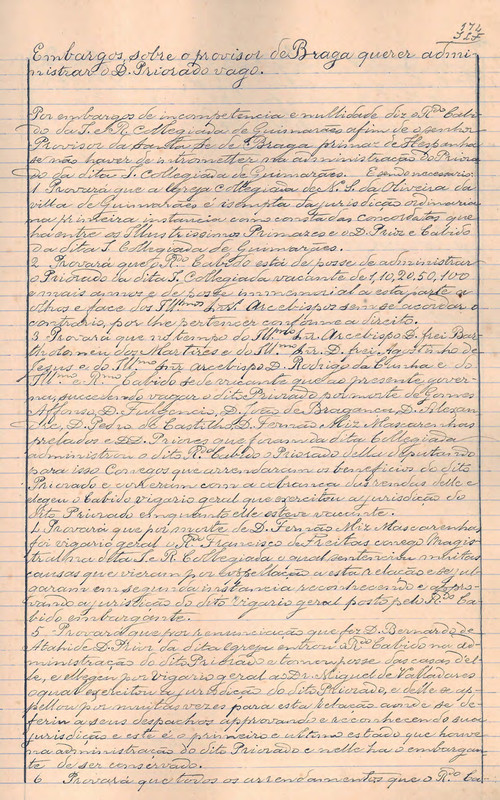 174
Embargos, sobre o provisor de Braga querer admi-
nistrar o D. Priorado vago.
Por embargos de incompetencia e nullidade diz o R.do Cabi-
do da I. e R. Collegiada de Guimarães afim de o senhor
Provisor da Santa Sé de Braga primaz de Hespanha
se não haver de intrometter na administração do Priora-
do da dita I. Collegiada de Guimarães. E sendo necessario:
1 Provará que a Igreja Collegiada de N. S. da Oliveira da
villa de Guimarães é isempta da jurisdição ordinaria
na primeira instancia como consta das concordatas que
ha entre os Illustrissimos Primazes e o D. Prior e Cabido
da dita I. Collegiada de Guimarães.
2 Provará que o R.do Cabido está de posse de administrar
o Priorado da dita I. Collegiada vacante de 1, 10, 20, 50, 100
e mais annos e de posse immemorial a esta parte a
olhos e face dos Ill.mos Snrs. Arcebispos sem se acordar o
contrario, por lhe pertencer conforme a direito.
3 Provará que no tempo do Ill.mo Snr. Arcebispo D. frei Bar-
tholomeu dos Martires e do Ill.mo Snr. D. frei Agostinho de
Jesus e do Ill.mo Snr arcebispo D. Rodrigo da Cunha e do
Ill.mo e R.mo Cabido sede vacante que ao presente gover-
na, succedendo vagar o dito Priorado por morte de Gomes
Affonso, D. Fulgencio, D. João de Bragança, D. Alexan-
dre, D. Pedro de Castilho, D. Fernão Miz Mascarenhas
prelados e DD. Priores que foram da dita Collegiada
administrou o dito R.do Cabido o Priorado della deputando
para isso Conegos que arrendaram os beneficios do dito
Priorado e corressem com a cobrança das rendas delle e
elegeu o Cabido vigario geral que exercitou a jurisdição do
dito Priorado emquanto elle esteve vacante.
4 Provará que por morte de D. Fernão Miz Mascarenhas,
foi vigario geral o R.do Francisco de Freitas, conego Magis-
tral na dita I. e R. Collegiada o qual sentenciou muitas
causas que vieram por appellação a esta relação e se jul-
garam em segunda instancia reconhecendo e appro-
vando a jurisdição do dito vigario geral posto pelo R.do Ca-
bido embargante.
5 Provará que por renunciação que fez D. Bernardo de
Atahide D. Prior da dita Igreja entrou o R.do Cabido na ad-
ministração do dito Priorado e tomou posse das casas del-
le, e elegeu por vigario geral ao Dr. Miguel de Valladares
o qual exercitou a jurisdição do dito Priorado, e delle se ap-
pellou por muitas vezes para esta Relação aonde se de-
feriu a seus despachos approvando e reconhecendo sua
jurisdição e este é o primeiro e ultimo estado que houve
na administração do dito Priorado e nelle ha o embargan-
te de ser conservado.
6 Provará que todos os arrendamentos que o R.do Ca-